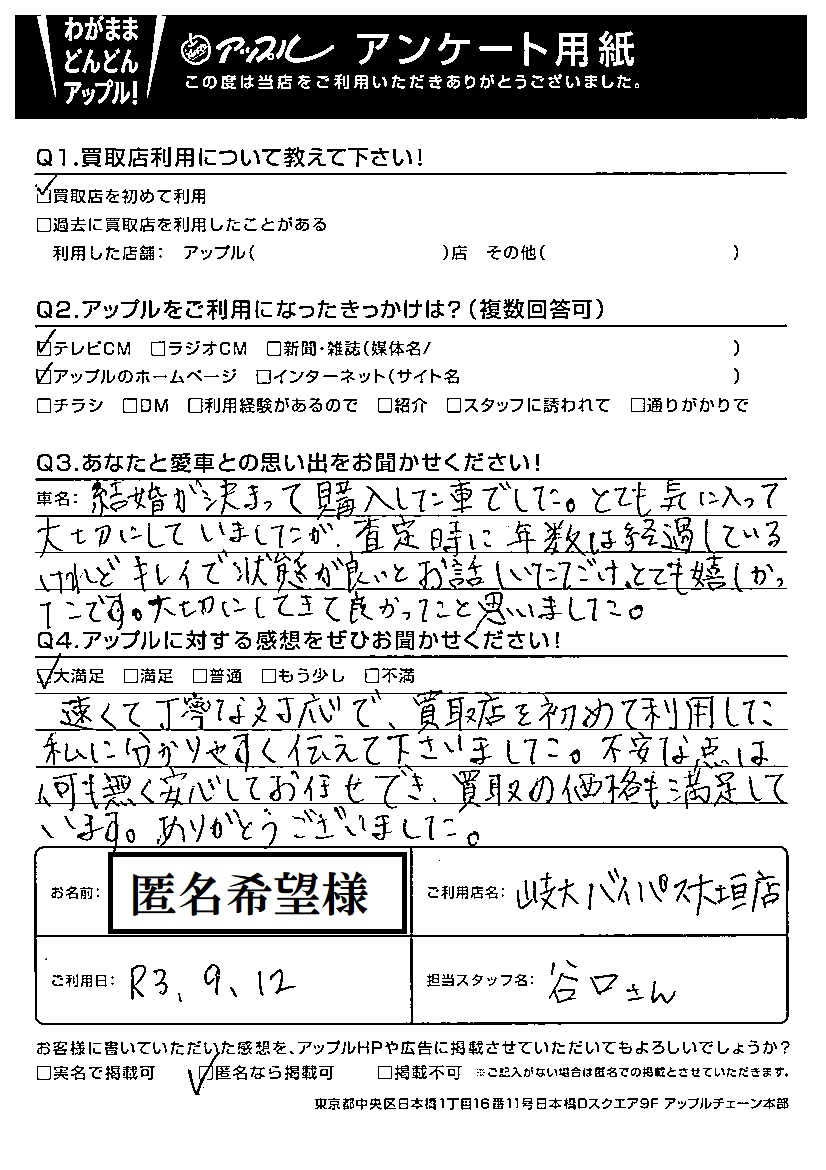 わがまま
どんどん
アップル!
アップル アンケート用紙
この度は当店をご利用いただきありがとうございました。
Q1.買取店利用について教えて下さい!
☑買取店を初めて利用
□過去に買取店を利用したことがある
利用した店舗: アップル( )店 その他( )
Q2.アップルをご利用になったきっかけは?(複数回答可)
☑テレビCM □ラジオCM □新聞・雑誌(媒体名/ )
☑アップルのホームページ □インターネット(サイト名 )
□チラシ □DM □利用経験があるので □紹介 □スタッフに誘われて □通りがかりで
Q3.あなたと愛車との思い出をお聞かせください!
車名: 結婚が決まって購入した車でした。とても気に入って
大切にしていましたが、査定時に年数は経過している
けれどキレイで状態が良いとお話しいただけ、とても嬉しかっ
たです。大切にしてきて良かったこと思いました。
Q4.アップルに対する感想をぜひお聞かせください!
☑大満足 □満足 □普通 □もう少し □不満
速くて丁寧な対応で、買取店を初めて利用した
私に分かりやすく伝えて下さいました。不安な点は
何も無く安心してお任せでき、買取の価格も満足して
います。ありがとうございました。
お名前: 匿名希望様
ご利用店名: 岐大バイパス大垣店
ご利用日: R3、9、12
担当スタッフ名: 谷口さん
お客様に書いていただいた感想を、アップルHPや広告に掲載させていただいてもよろしいでしょうか?
□実名で掲載可 ☑匿名なら掲載可 □掲載不可 ※ご記入がない場合は匿名での掲載とさせていただきます。
東京都中央区日本橋1丁目16番11号日本橋Dスクエア9F アップルチェーン本部